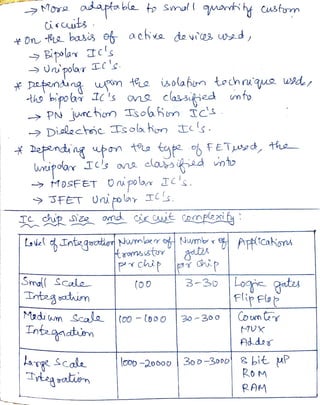 → More adaptable to small quantity custom
circuits.
* On the basis of active devices used,
→ Bipolar IC's
→ Unipolar IC's.
* Depending upon the isolation technique used,
the bipolar IC's are classified into
→ PN junction Isolation IC's.
→ Dielectric Isolation IC's.
* Depending upon the type of FET used, the
unipolar IC's are classified into
→ MOSFET Unipolar IC's.
→ JFET Unipolar IC's.
IC chip size and circuit complexity:
Level of Integration | Number of transistor per chip | Number of gates per chip | Applications
Small Scale Integration | 100 | 3-30 | Logic gates Flip Flop
Medium Scale Integration | 100-1000 | 30-300 | Counter MUX Adder
Large Scale Integration | 1000-20000 | 300-3000 | 8 bit μP ROM RAM